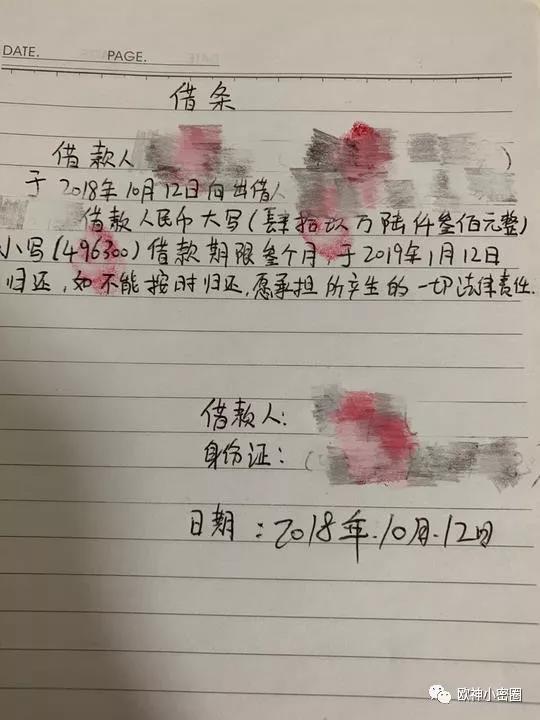 DATE. PAGE.
借条
借款人 )
于2018年10月12日向出借人
借款人民币大写(肆拾玖万陆仟叁佰元整)
小写(496300)借款期限叁个月,于2019年1月12日
归还,如不能按时归还,愿承担所产生的一切法律责任.
借款人:
身份证: (
日期:2018年.10月.12日
欧神小密圈